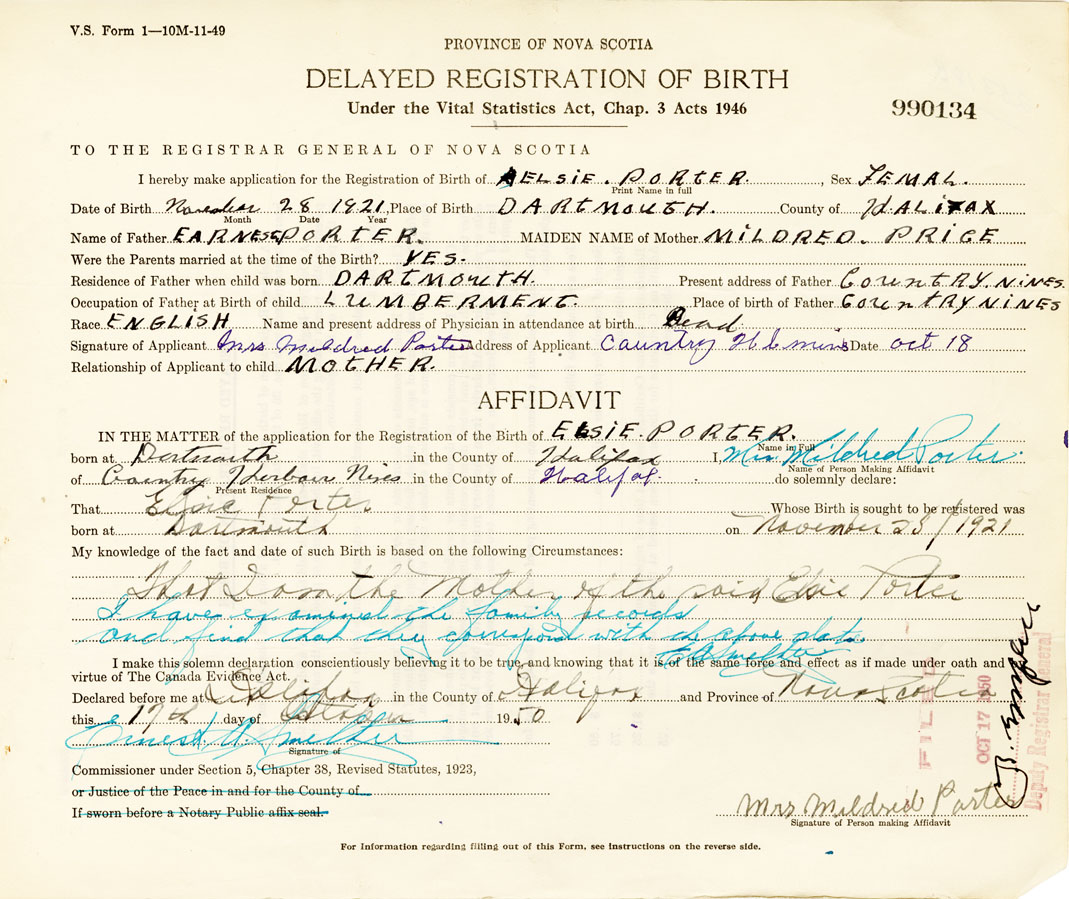 V.S. Form 1—10M-11-49
PROVINCE OF NOVA SCOTIA
DELAYED REGISTRATION OF BIRTH
Under the Vital Statistics Act, Chap. 3 Acts 1946
990134
TO THE REGISTRAR GENERAL OF NOVA SCOTIA
I hereby make application for the Registration of Birth of ELSIE. PORTER. , Sex FEMAL.
Print Name in full
Date of Birth November 28 1921, Place of Birth DARTMOUTH. County of HALIFAX
Month Date Year
Name of Father EARNEST PORTER. MAIDEN NAME of Mother MILDRED. PRIGE
Were the Parents married at the time of the Birth? YES.
Residence of Father when child was born DARTMOUTH. Present address of Father COUNTRY. NINES.
Occupation of Father at Birth of child LUMBERMENT. Place of birth of Father COUNTRY NINES
Race ENGLISH Name and present address of Physician in attendance at birth Dead
Signature of Applicant Mrs Mildred Porter Address of Applicant Country Date oct 18
Relationship of Applicant to child MOTHER.
AFFIDAVIT
IN THE MATTER of the application for the Registration of the Birth of ELSIE. PORTER.
Name in Full
born at Dartmouth in the County of Halifax I, Mrs Mildred Porter
Name of Person Making Affidavit
of Country Harbour Nines in the County of Halifax do solemnly declare:
Present Residence
That Elsie Porter Whose Birth is sought to be registered was
born at Dartmouth on November 28/1921
My knowledge of the fact and date of such Birth is based on the following Circumstances:
That I am the Mother of the said Elsie Porter
I have examined the family records
and find that they correspond with the above data
E A Smeltzer
I make this solemn declaration conscientiously believing it to be true, and knowing that it is of the same force and effect as if made under oath and by
virtue of The Canada Evidence Act.
Declared before me at Halifax in the County of Halifax and Province of Nova Scotia
this 17th day of October 1950
Ernest A. Smeltzer
Signature of
Commissioner under Section 5, Chapter 38, Revised Statutes, 1923,
or Justice of the Peace in and for the County of
If sworn before a Notary Public affix seal.
Mrs Mildred Porter
Signature of Person making Affidavit
For Information regarding filling out of this Form, see instructions on the reverse side.
FILED
OCT 17 1950
Deputy Registrar General